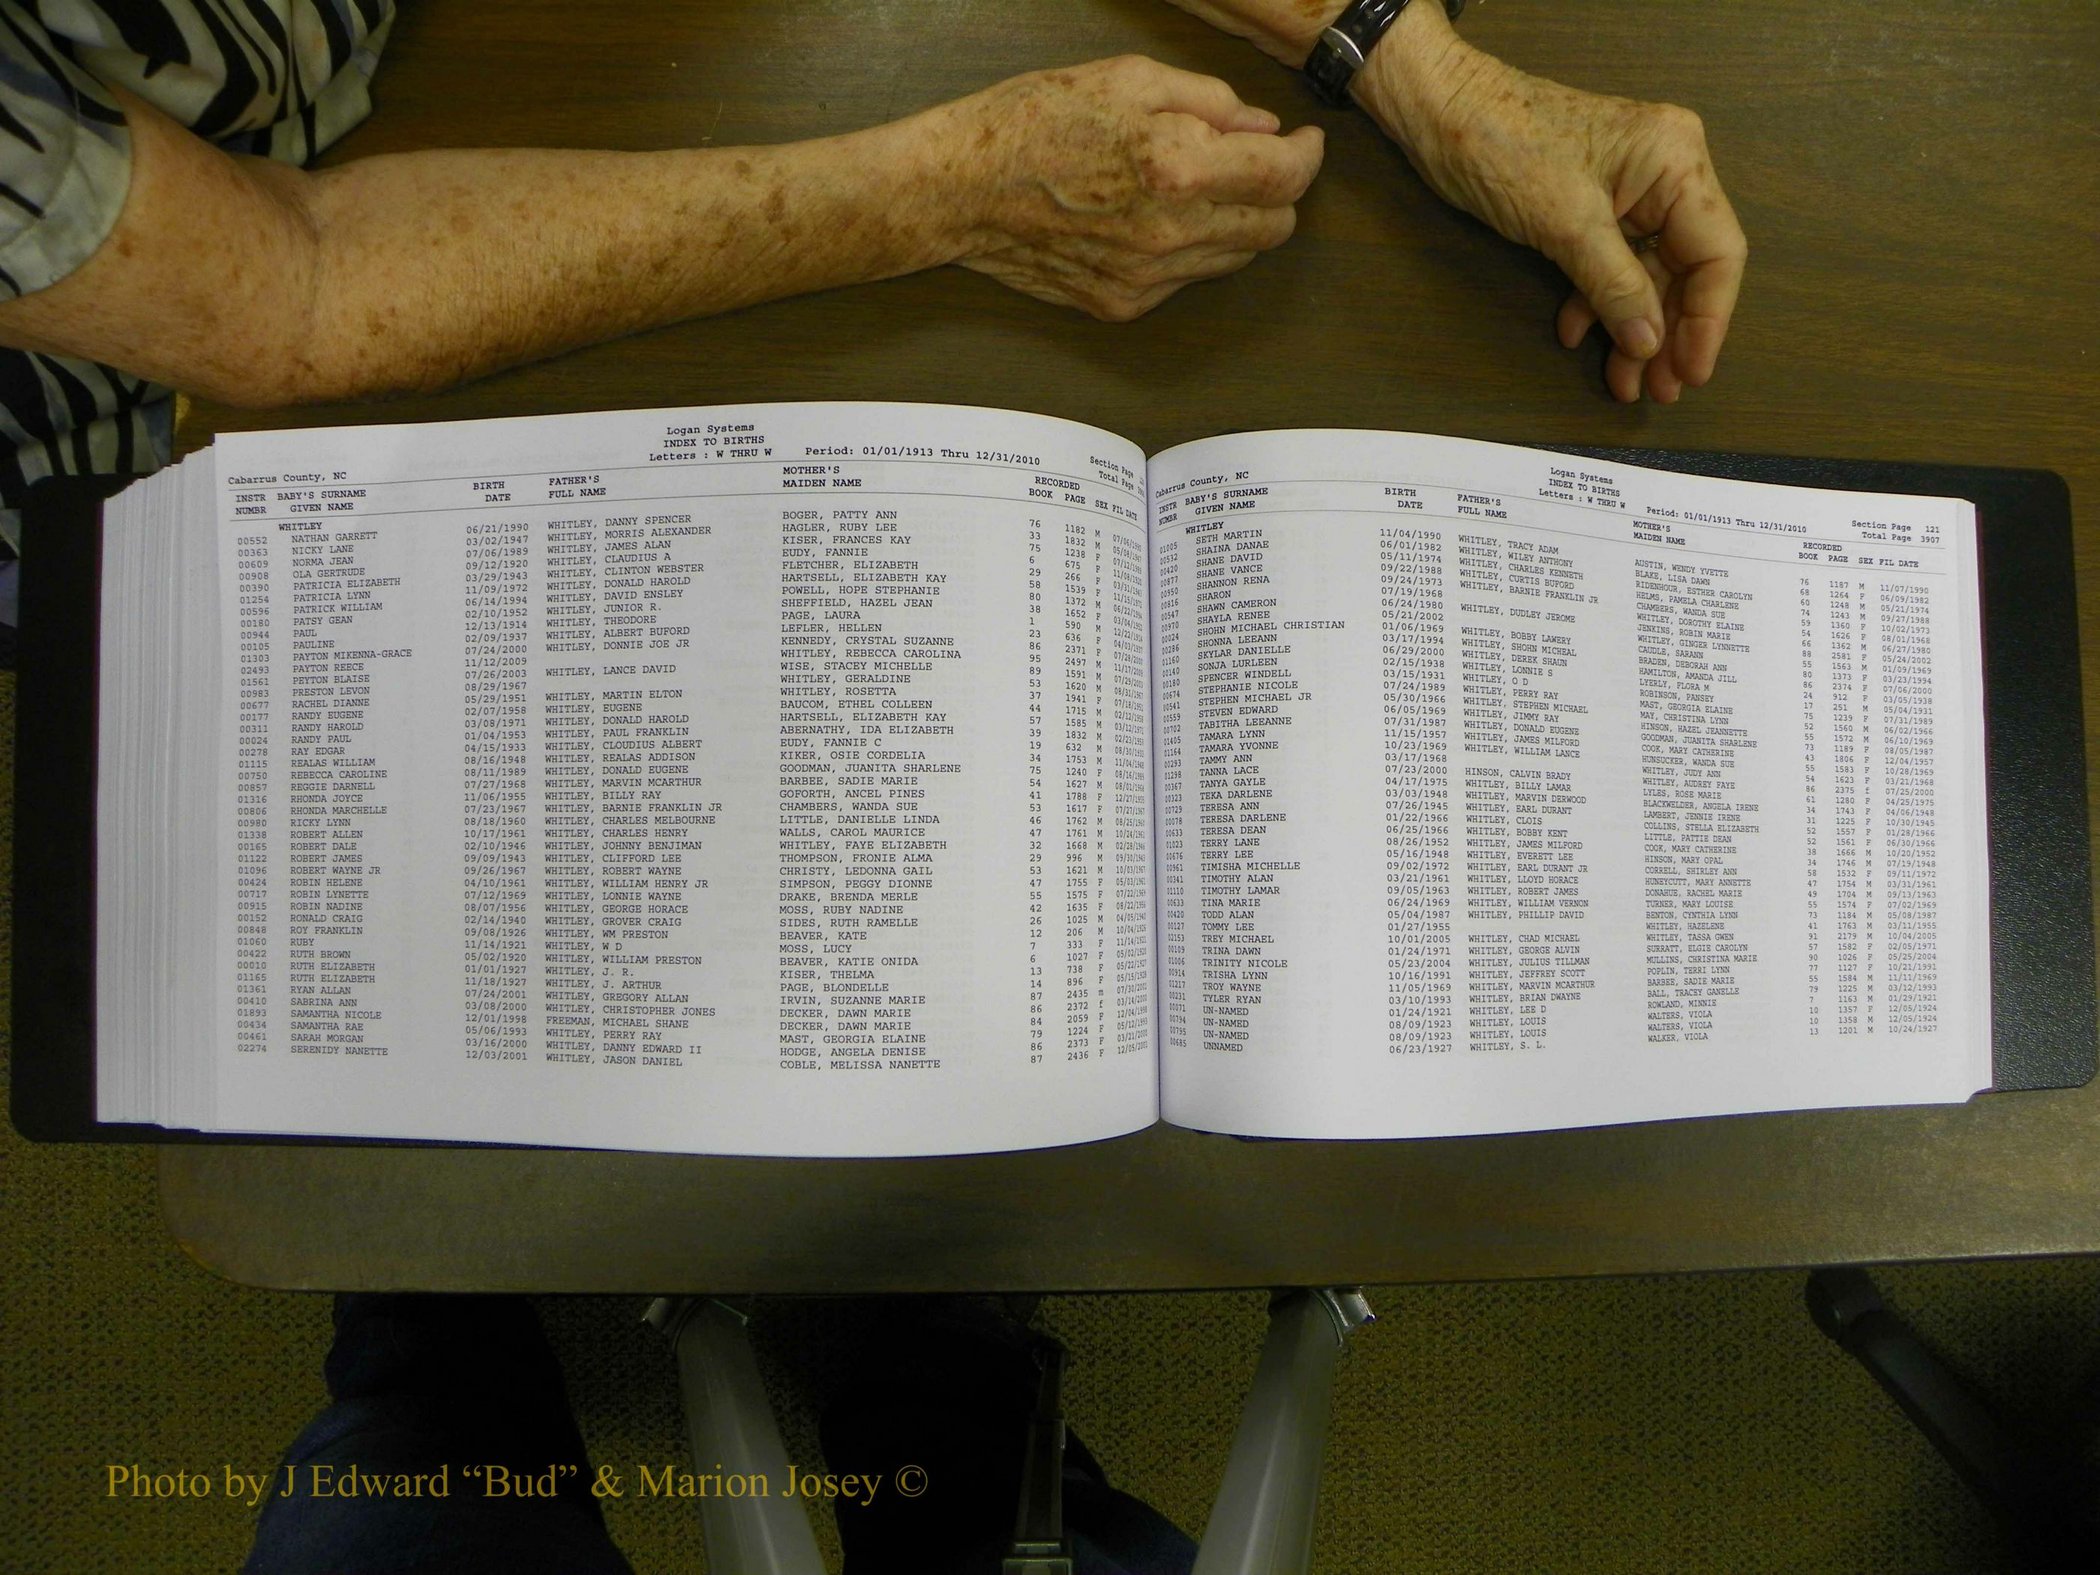 Logan Systems
INDEX TO BIRTHS
Letters : W THRU W Period: 01/01/1913 Thru 12/31/2010
Section Page
Total Page
Cabarrus County, NC
INSTR BABY'S SURNAME BIRTH FATHER'S MOTHER'S RECORDED
NUMBR GIVEN NAME DATE FULL NAME MAIDEN NAME BOOK PAGE SEX FIL DATE
WHITLEY
00552 NATHAN GARRETT 06/21/1990 WHITLEY, DANNY SPENCER BOGER, PATTY ANN 76 1182 M 07/06/1990
00363 NICKY LANE 03/02/1947 WHITLEY, MORRIS ALEXANDER HAGLER, RUBY LEE 33 1832 M 05/08/1947
00609 NORMA JEAN 07/06/1989 WHITLEY, JAMES ALAN KISER, FRANCES KAY 75 1238 F 07/12/1989
00908 OLA GERTRUDE 09/12/1920 WHITLEY, CLAUDIUS A EUDY, FANNIE 6 675 F 11/08/1920
00390 PATRICIA ELIZABETH 03/29/1943 WHITLEY, CLINTON WEBSTER FLETCHER, ELIZABETH 29 266 F 03/31/1943
01254 PATRICIA LYNN 11/09/1972 WHITLEY, DONALD HAROLD HARTSELL, ELIZABETH KAY 58 1539 F
00596 PATRICK WILLIAM 06/14/1994 WHITLEY, DAVID ENSLEY POWELL, HOPE STEPHANIE 80 1372 M 06/22/1994
00180 PATSY GEAN 02/10/1952 WHITLEY, JUNIOR R. SHEFFIELD, HAZEL JEAN 38 1652 F 03/04/1952
00944 PAUL 12/13/1914 WHITLEY, THEODORE PAGE, LAURA 1 590 M 12/22/1914
00105 PAULINE 02/09/1937 WHITLEY, ALBERT BUFORD LEFLER, HELLEN 23 636 F 04/03/1937
01303 PAYTON MIKENNA-GRACE 07/24/2000 WHITLEY, DONNIE JOE JR KENNEDY, CRYSTAL SUZANNE 86 2371 F 07/28/2000
02493 PAYTON REECE 11/12/2009 WHITLEY, REBECCA CAROLINA 95 2497 M 11/17/2009
01561 PEYTON BLAISE 07/26/2003 WHITLEY, LANCE DAVID WISE, STACEY MICHELLE 89 1591 M 07/29/2003
00983 PRESTON LEVON 08/29/1967 WHITLEY, GERALDINE 53 1620 M 08/31/1967
00677 RACHEL DIANNE 05/29/1951 WHITLEY, MARTIN ELTON WHITLEY, ROSETTA 37 1941 F
00177 RANDY EUGENE 02/07/1958 WHITLEY, EUGENE BAUCOM, ETHEL COLLEEN 44 1715 M 02/12/1958
00311 RANDY HAROLD 03/08/1971 WHITLEY, DONALD HAROLD HARTSELL, ELIZABETH KAY 57 1585 M 03/12/1971
00024 RANDY PAUL 01/04/1953 WHITLEY, PAUL FRANKLIN ABERNATHY, IDA ELIZABETH 39 1832 M
00278 RAY EDGAR 04/15/1933 WHITLEY, CLOUDIUS ALBERT EUDY, FANNIE C 19 632 M
01115 REALAS WILLIAM 08/16/1948 WHITLEY, REALAS ADDISON KIKER, OSIE CORDELIA 34 1753 M 11/04/1948
00750 REBECCA CAROLINE 08/11/1989 WHITLEY, DONALD EUGENE GOODMAN, JUANITA SHARLENE 75 1240 F 08/16/1989
00857 REGGIE DARNELL 07/27/1968 WHITLEY, MARVIN MCARTHUR BARBEE, SADIE MARIE 54 1627 M
01316 RHONDA JOYCE 11/06/1955 WHITLEY, BILLY RAY GOFORTH, ANCEL PINES 41 1788 F
00806 RHONDA MARCHELLE 07/23/1967 WHITLEY, BARNIE FRANKLIN JR CHAMBERS, WANDA SUE 53 1617 F 07/27/1967
00980 RICKY LYNN 08/18/1960 WHITLEY, CHARLES MELBOURNE LITTLE, DANIELLE LINDA 46 1762 M 08/25/1960
01338 ROBERT ALLEN 10/17/1961 WHITLEY, CHARLES HENRY WALLS, CAROL MAURICE 47 1761 M 10/24/1961
00165 ROBERT DALE 02/10/1946 WHITLEY, JOHNNY BENJIMAN WHITLEY, FAYE ELIZABETH 32 1668 M 02/28/1946
01122 ROBERT JAMES 09/09/1943 WHITLEY, CLIFFORD LEE THOMPSON, FRONIE ALMA 29 996 M 09/30/1943
01096 ROBERT WAYNE JR 09/26/1967 WHITLEY, ROBERT WAYNE CHRISTY, LEDONNA GAIL 53 1621 M 10/03/1967
00424 ROBIN HELENE 04/10/1961 WHITLEY, WILLIAM HENRY JR SIMPSON, PEGGY DIONNE 47 1755 F 05/03/1961
00717 ROBIN LYNETTE 07/12/1969 WHITLEY, LONNIE WAYNE DRAKE, BRENDA MERLE 55 1575 F 07/22/1969
00915 ROBIN NADINE 08/07/1956 WHITLEY, GEORGE HORACE MOSS, RUBY NADINE 42 1635 F 08/22/1956
00152 RONALD CRAIG 02/14/1940 WHITLEY, GROVER CRAIG SIDES, RUTH RAMELLE 26 1025 M 04/05/1940
00848 ROY FRANKLIN 09/08/1926 WHITLEY, WM PRESTON BEAVER, KATE 12 206 M 10/04/1926
01060 RUBY 11/14/1921 WHITLEY, W D MOSS, LUCY 7 333 F 11/14/1921
00422 RUTH BROWN 05/02/1920 WHITLEY, WILLIAM PRESTON BEAVER, KATIE ONIDA 6 1027 F 05/02/1920
00010 RUTH ELIZABETH 01/01/1927 WHITLEY, J. R. KISER, THELMA 13 738 F 05/22/1927
01165 RUTH ELIZABETH 11/18/1927 WHITLEY, J. ARTHUR PAGE, BLONDELLE 14 896 F
01361 RYAN ALLAN 07/24/2001 WHITLEY, GREGORY ALLAN IRVIN, SUZANNE MARIE 87 2435 m 07/30/2001
00410 SABRINA ANN 03/08/2000 WHITLEY, CHRISTOPHER JONES DECKER, DAWN MARIE 86 2372 f 03/14/2000
01893 SAMANTHA NICOLE 12/01/1998 FREEMAN, MICHAEL SHANE DECKER, DAWN MARIE 84 2059 F 12/04/1998
00434 SAMANTHA RAE 05/06/1993 WHITLEY, PERRY RAY MAST, GEORGIA ELAINE 79 1224 F 05/12/1993
00461 SARAH MORGAN 03/16/2000 WHITLEY, DANNY EDWARD II HODGE, ANGELA DENISE 86 2373 F 03/21/2000
02274 SERENIDY NANETTE 12/03/2001 WHITLEY, JASON DANIEL COBLE, MELISSA NANETTE 87 2436 F 12/05/2001
Logan Systems
INDEX TO BIRTHS
Letters : W THRU W Period: 01/01/1913 Thru 12/31/2010
Section Page 121
Total Page 3907
Cabarrus County, NC
INSTR BABY'S SURNAME BIRTH FATHER'S MOTHER'S RECORDED
NUMBR GIVEN NAME DATE FULL NAME MAIDEN NAME BOOK PAGE SEX FIL DATE
WHITLEY
01005 SETH MARTIN 11/04/1990 WHITLEY, TRACY ADAM AUSTIN, WENDY YVETTE 76 1187 M 11/07/1990
00532 SHAINA DANAE 06/01/1982 WHITLEY, WILEY ANTHONY BLAKE, LISA DAWN 68 1264 F 06/09/1982
00420 SHANE DAVID 05/11/1974 WHITLEY, CHARLES KENNETH RIDENHOUR, ESTHER CAROLYN 60 1248 M 05/21/1974
00877 SHANE VANCE 09/22/1988 WHITLEY, CURTIS BUFORD HELMS, PAMELA CHARLENE 74 1243 M 09/27/1988
00950 SHANNON RENA 09/24/1973 WHITLEY, BARNIE FRANKLIN JR CHAMBERS, WANDA SUE 59 1360 F 10/02/1973
00816 SHARON 07/19/1968 WHITLEY, DOROTHY ELAINE 54 1626 F 08/01/1968
00547 SHAWN CAMERON 06/24/1980 WHITLEY, DUDLEY JEROME JENKINS, ROBIN MARIE 66 1362 M 06/27/1980
00970 SHAYLA RENEE 05/21/2002 WHITLEY, GINGER LYNNETTE 88 2581 F 05/24/2002
00024 SHOHN MICHAEL CHRISTIAN 01/06/1969 WHITLEY, BOBBY LAWERY CAUDLE, SARANN 55 1563 M 01/09/1969
00286 SHONNA LEEANN 03/17/1994 WHITLEY, SHOHN MICHEAL BRADEN, DEBORAH ANN 80 1373 F 03/23/1994
01160 SKYLAR DANIELLE 06/29/2000 WHITLEY, DEREK SHAUN HAMILTON, AMANDA JILL 86 2374 F 07/06/2000
00140 SONJA LURLEEN 02/15/1938 WHITLEY, LONNIE S LYERLY, FLORA M 24 912 F 03/05/1938
00180 SPENCER WINDELL 03/15/1931 WHITLEY, O D ROBINSON, PANSEY 17 251 M 05/04/1931
00674 STEPHANIE NICOLE 07/24/1989 WHITLEY, PERRY RAY MAST, GEORGIA ELAINE 75 1239 F 07/31/1989
00541 STEPHEN MICHAEL JR 05/30/1966 WHITLEY, STEPHEN MICHAEL MAY, CHRISTINA LYNN 52 1560 M 06/02/1966
00559 STEVEN EDWARD 06/05/1969 WHITLEY, JIMMY RAY HINSON, HAZEL JEANNETTE 55 1572 M 06/10/1969
00702 TABITHA LEEANNE 07/31/1987 WHITLEY, DONALD EUGENE GOODMAN, JUANITA SHARLENE 73 1189 F 08/05/1987
01405 TAMARA LYNN 11/15/1957 WHITLEY, JAMES MILFORD COOK, MARY CATHERINE 43 1806 F 12/04/1957
01164 TAMARA YVONNE 10/23/1969 WHITLEY, WILLIAM LANCE HUNSUCKER, WANDA SUE 55 1583 F 10/28/1969
00293 TAMMY ANN 03/17/1968 WHITLEY, JUDY ANN 54 1623 F 03/21/1968
01298 TANNA LACE 07/23/2000 HINSON, CALVIN BRADY WHITLEY, AUDREY FAYE 86 2375 f 07/25/2000
00367 TANYA GAYLE 04/17/1975 WHITLEY, BILLY LAMAR LYLES, ROSE MARIE 61 1280 F 04/25/1975
00323 TEKA DARLENE 03/03/1948 WHITLEY, MARVIN DERWOOD BLACKWELDER, ANGELA IRENE 34 1743 F 04/06/1948
00729 TERESA ANN 07/26/1945 WHITLEY, EARL DURANT LAMBERT, JENNIE IRENE 31 1225 F 10/30/1945
00078 TERESA DARLENE 01/22/1966 WHITLEY, CLOIS COLLINS, STELLA ELIZABETH 52 1557 F 01/28/1966
00633 TERESA DEAN 06/25/1966 WHITLEY, BOBBY KENT LITTLE, PATTIE DEAN 52 1561 F 06/30/1966
01023 TERRY LANE 08/26/1952 WHITLEY, JAMES MILFORD COOK, MARY CATHERINE 38 1666 M 10/20/1952
00676 TERRY LEE 05/16/1948 WHITLEY, EVERETT LEE HINSON, MARY OPAL 34 1746 M 07/19/1948
00961 TIMISHA MICHELLE 09/02/1972 WHITLEY, EARL DURANT JR CORRELL, SHIRLEY ANN 58 1532 F 09/11/1972
00341 TIMOTHY ALAN 03/21/1961 WHITLEY, LLOYD HORACE HUNEYCUTT, MARY ANNETTE 47 1754 M 03/31/1961
01110 TIMOTHY LAMAR 09/05/1963 WHITLEY, ROBERT JAMES DONAHUE, RACHEL MARIE 49 1704 M 09/13/1963
00633 TINA MARIE 06/24/1969 WHITLEY, WILLIAM VERNON TURNER, MARY LOUISE 55 1574 F 07/02/1969
00420 TODD ALAN 05/04/1987 WHITLEY, PHILLIP DAVID BENTON, CYNTHIA LYNN 73 1184 M 05/08/1987
00127 TOMMY LEE 01/27/1955 WHITLEY, HAZELENE 41 1763 M 03/11/1955
02153 TREY MICHAEL 10/01/2005 WHITLEY, CHAD MICHAEL WHITLEY, TASSA GWEN 91 2179 M 10/04/2005
00109 TRINA DAWN 01/24/1971 WHITLEY, GEORGE ALVIN SURRATT, ELGIE CAROLYN 57 1582 F 02/05/1971
01006 TRINITY NICOLE 05/23/2004 WHITLEY, JULIUS TILLMAN MULLINS, CHRISTINA MARIE 90 1026 F 05/25/2004
00914 TRISHA LYNN 10/16/1991 WHITLEY, JEFFREY SCOTT POPLIN, TERRI LYNN 77 1127 F 10/21/1991
01217 TROY WAYNE 11/05/1969 WHITLEY, MARVIN MCARTHUR BARBEE, SADIE MARIE 55 1584 M 11/11/1969
00231 TYLER RYAN 03/10/1993 WHITLEY, BRIAN DWAYNE BALL, TRACEY GANELLE 79 1225 M 03/12/1993
00071 UN-NAMED 01/24/1921 WHITLEY, LEE D ROWLAND, MINNIE 7 1163 M 01/29/1921
00794 UN-NAMED 08/09/1923 WHITLEY, LOUIS WALTERS, VIOLA 10 1357 F 12/05/1924
00795 UN-NAMED 08/09/1923 WHITLEY, LOUIS WALTERS, VIOLA 10 1358 M 12/05/1924
00685 UNNAMED 06/23/1927 WHITLEY, S. L. WALKER, VIOLA 13 1201 M 10/24/1927
Photo by J Edward “Bud” & Marion Josey ©